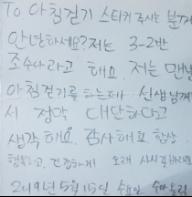 To 아침걷기 스티커 주시는 분께
안녕하세요? 저는 3-2반
조수나라고 해요. 저는 맨날
아침걷기를 하는데 선생님께
서 정말 대단하다고
생각해요. 감사해요 항상
행복하고, 건강하게 오래
2019년 5월 15일 수요일